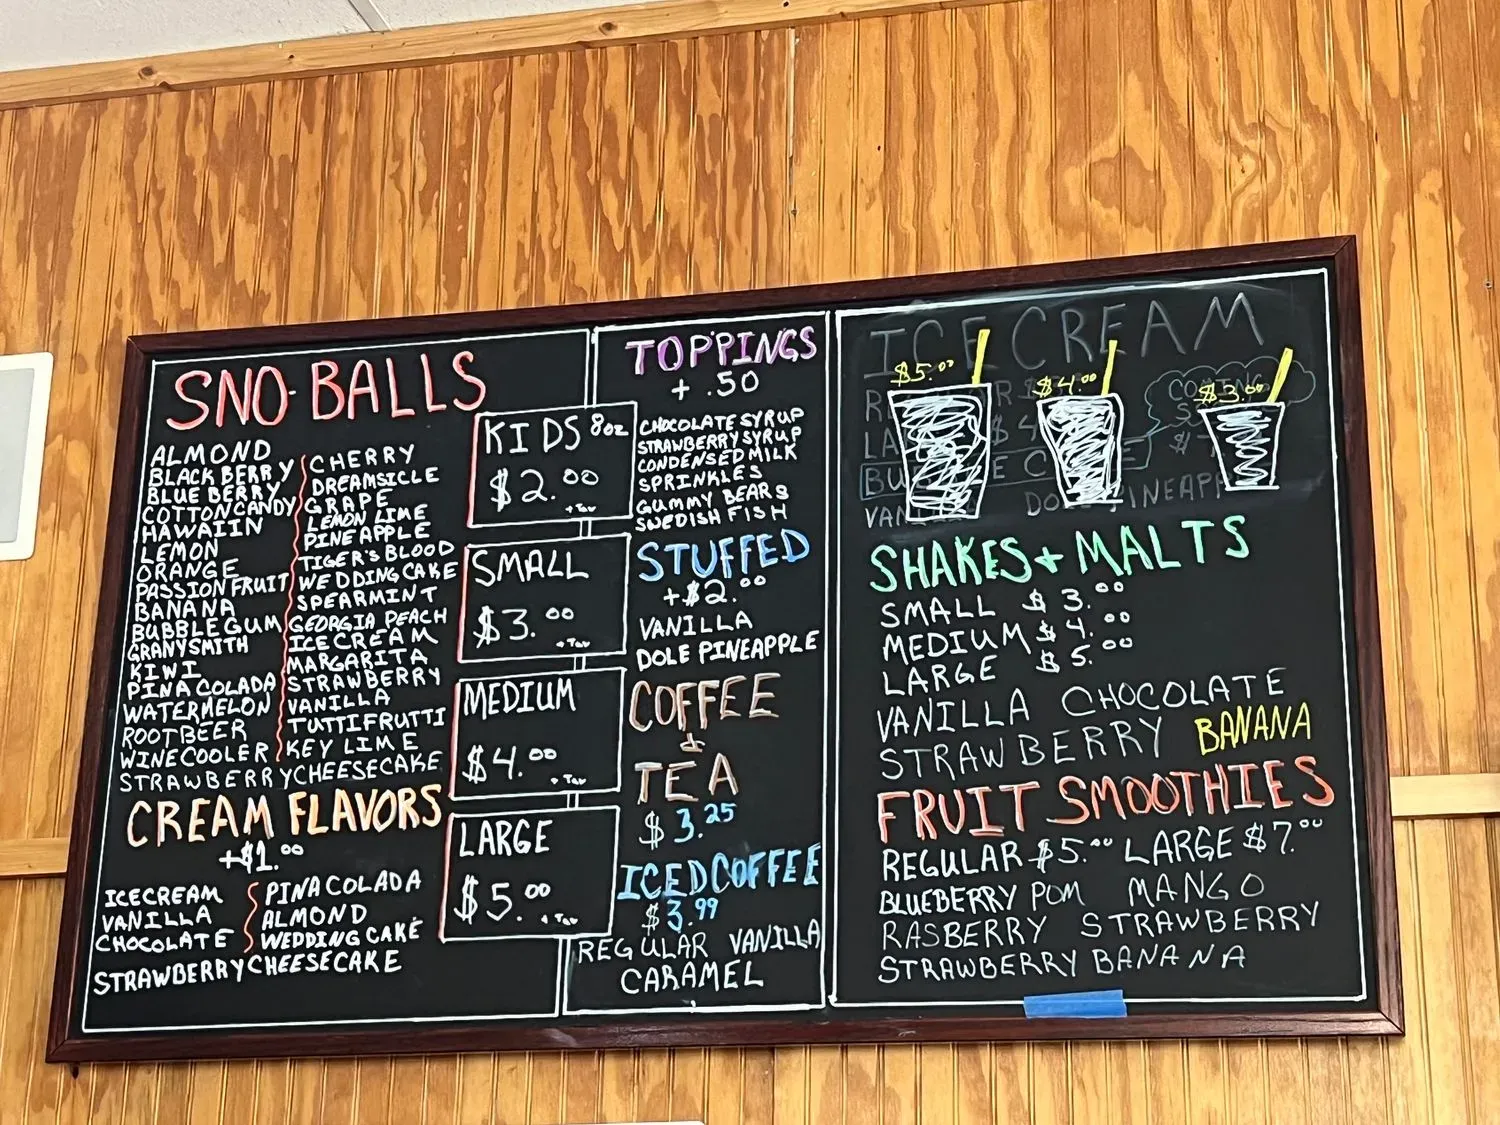 SNO-BALLS
ALMOND
BLACKBERRY
BLUE BERRY
COTTONCANDY
HAWAIIN
LEMON
ORANGE
PASSION FRUIT
BANANA
BUBBLEGUM
GRANYSMITH
KIWI
PINA COLADA
WATERMELON
ROOTBEER
WINECOOLER
STRAWBERRYCHEESECAKE
CHERRY
DREAMSICLE
GRAPE
LEMON LIME
PINEAPPLE
TIGER'S BLOOD
WEDDING CAKE
SPEARMINT
GEORGIA PEACH
ICECREAM
MARGARITA
STRAWBERRY
VANILLA
TUTTIFRUTTI
KEY LIME
CREAM FLAVORS
+$1.00
ICECREAM
VANILLA
CHOCOLATE
PINA COLADA
ALMOND
WEDDING CAKE
STRAWBERRYCHEESECAKE
KIDS 8oz
$2.00
+Tax
SMALL
$3.00
+Tax
MEDIUM
$4.00
+Tax
LARGE
$5.00
+Tax
TOPPINGS
+ .50
CHOCOLATE SYRUP
STRAWBERRY SYRUP
CONDENSED MILK
SPRINKLES
GUMMY BEARS
SWEDISH FISH
STUFFED
+$2.00
VANILLA
DOLE PINEAPPLE
COFFEE
&
TEA
$3.25
ICED COFFEE
$3.99
REGULAR VANILLA
CARAMEL
ICE CREAM
$5.00 $4.00 $3.00
DOLE PINEAPP
SHAKES + MALTS
SMALL $3.00
MEDIUM $4.00
LARGE $5.00
VANILLA CHOCOLATE
STRAWBERRY BANANA
FRUIT SMOOTHIES
REGULAR $5.00 LARGE $7.00
BLUEBERRY POM MANGO
RASBERRY STRAWBERRY
STRAWBERRY BANANA